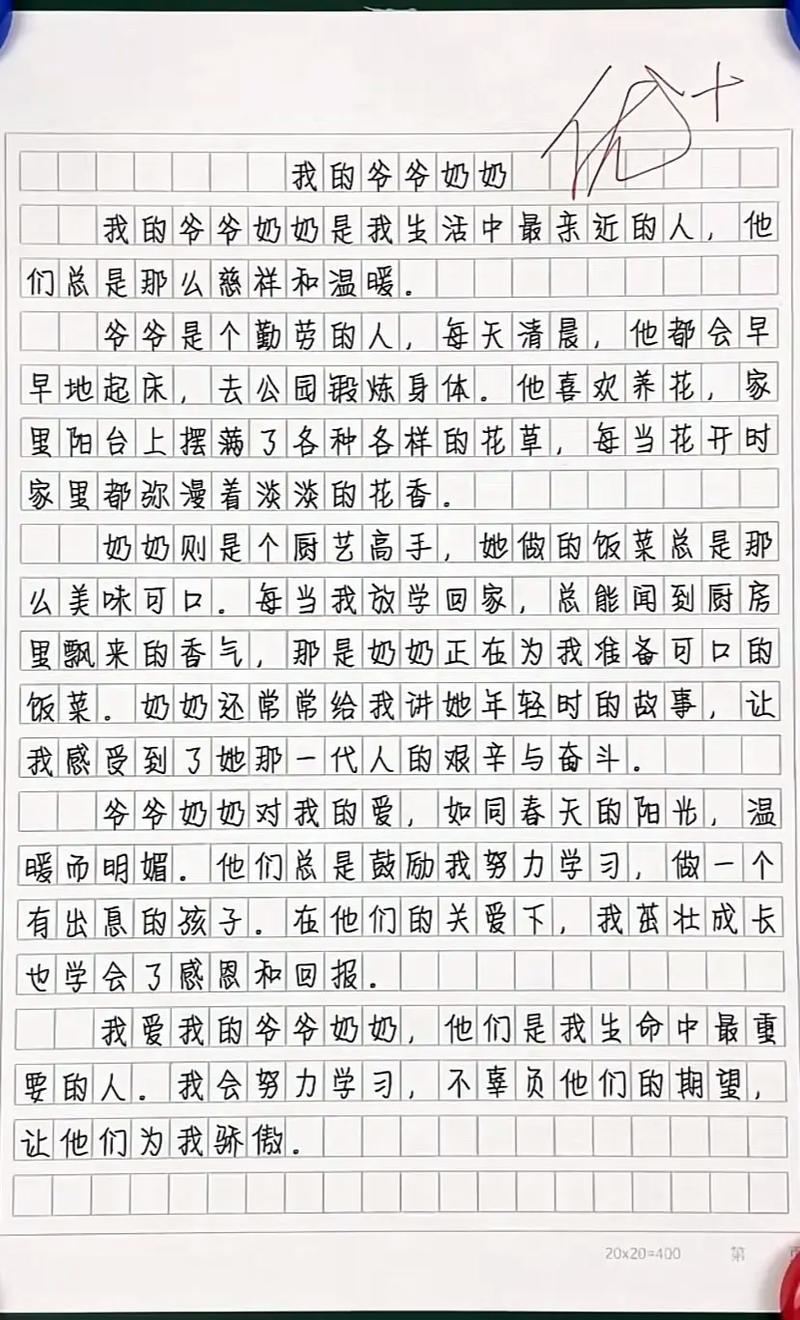 优+
我的爷爷奶奶
我的爷爷奶奶是我生活中最亲近的人，他
们总是那么慈祥和温暖。
爷爷是个勤劳的人，每天清晨，他都会早
早地起床，去公园锻炼身体。他喜欢养花，家
里阳台上摆满了各种各样的花草，每当花开时
家里都弥漫着淡淡的花香。
奶奶则是个厨艺高手，她做的饭菜总是那
么美味可口。每当我放学回家，总能闻到厨房
里飘来的香气，那是奶奶正在为我准备可口的
饭菜。奶奶还常常给我讲她年轻时的故事，让
我感受到了她那一代人的艰辛与奋斗。
爷爷奶奶对我的爱，如同春天的阳光，温
暖而明媚。他们总是鼓励我努力学习，做一个
有出息的孩子。在他们的关爱下，我茁壮成长
也学会了感恩和回报。
我爱我的爷爷奶奶，他们是我生命中最重
要的人。我会努力学习，不辜负他们的期望，
让他们为我骄傲。
20x20=400 第